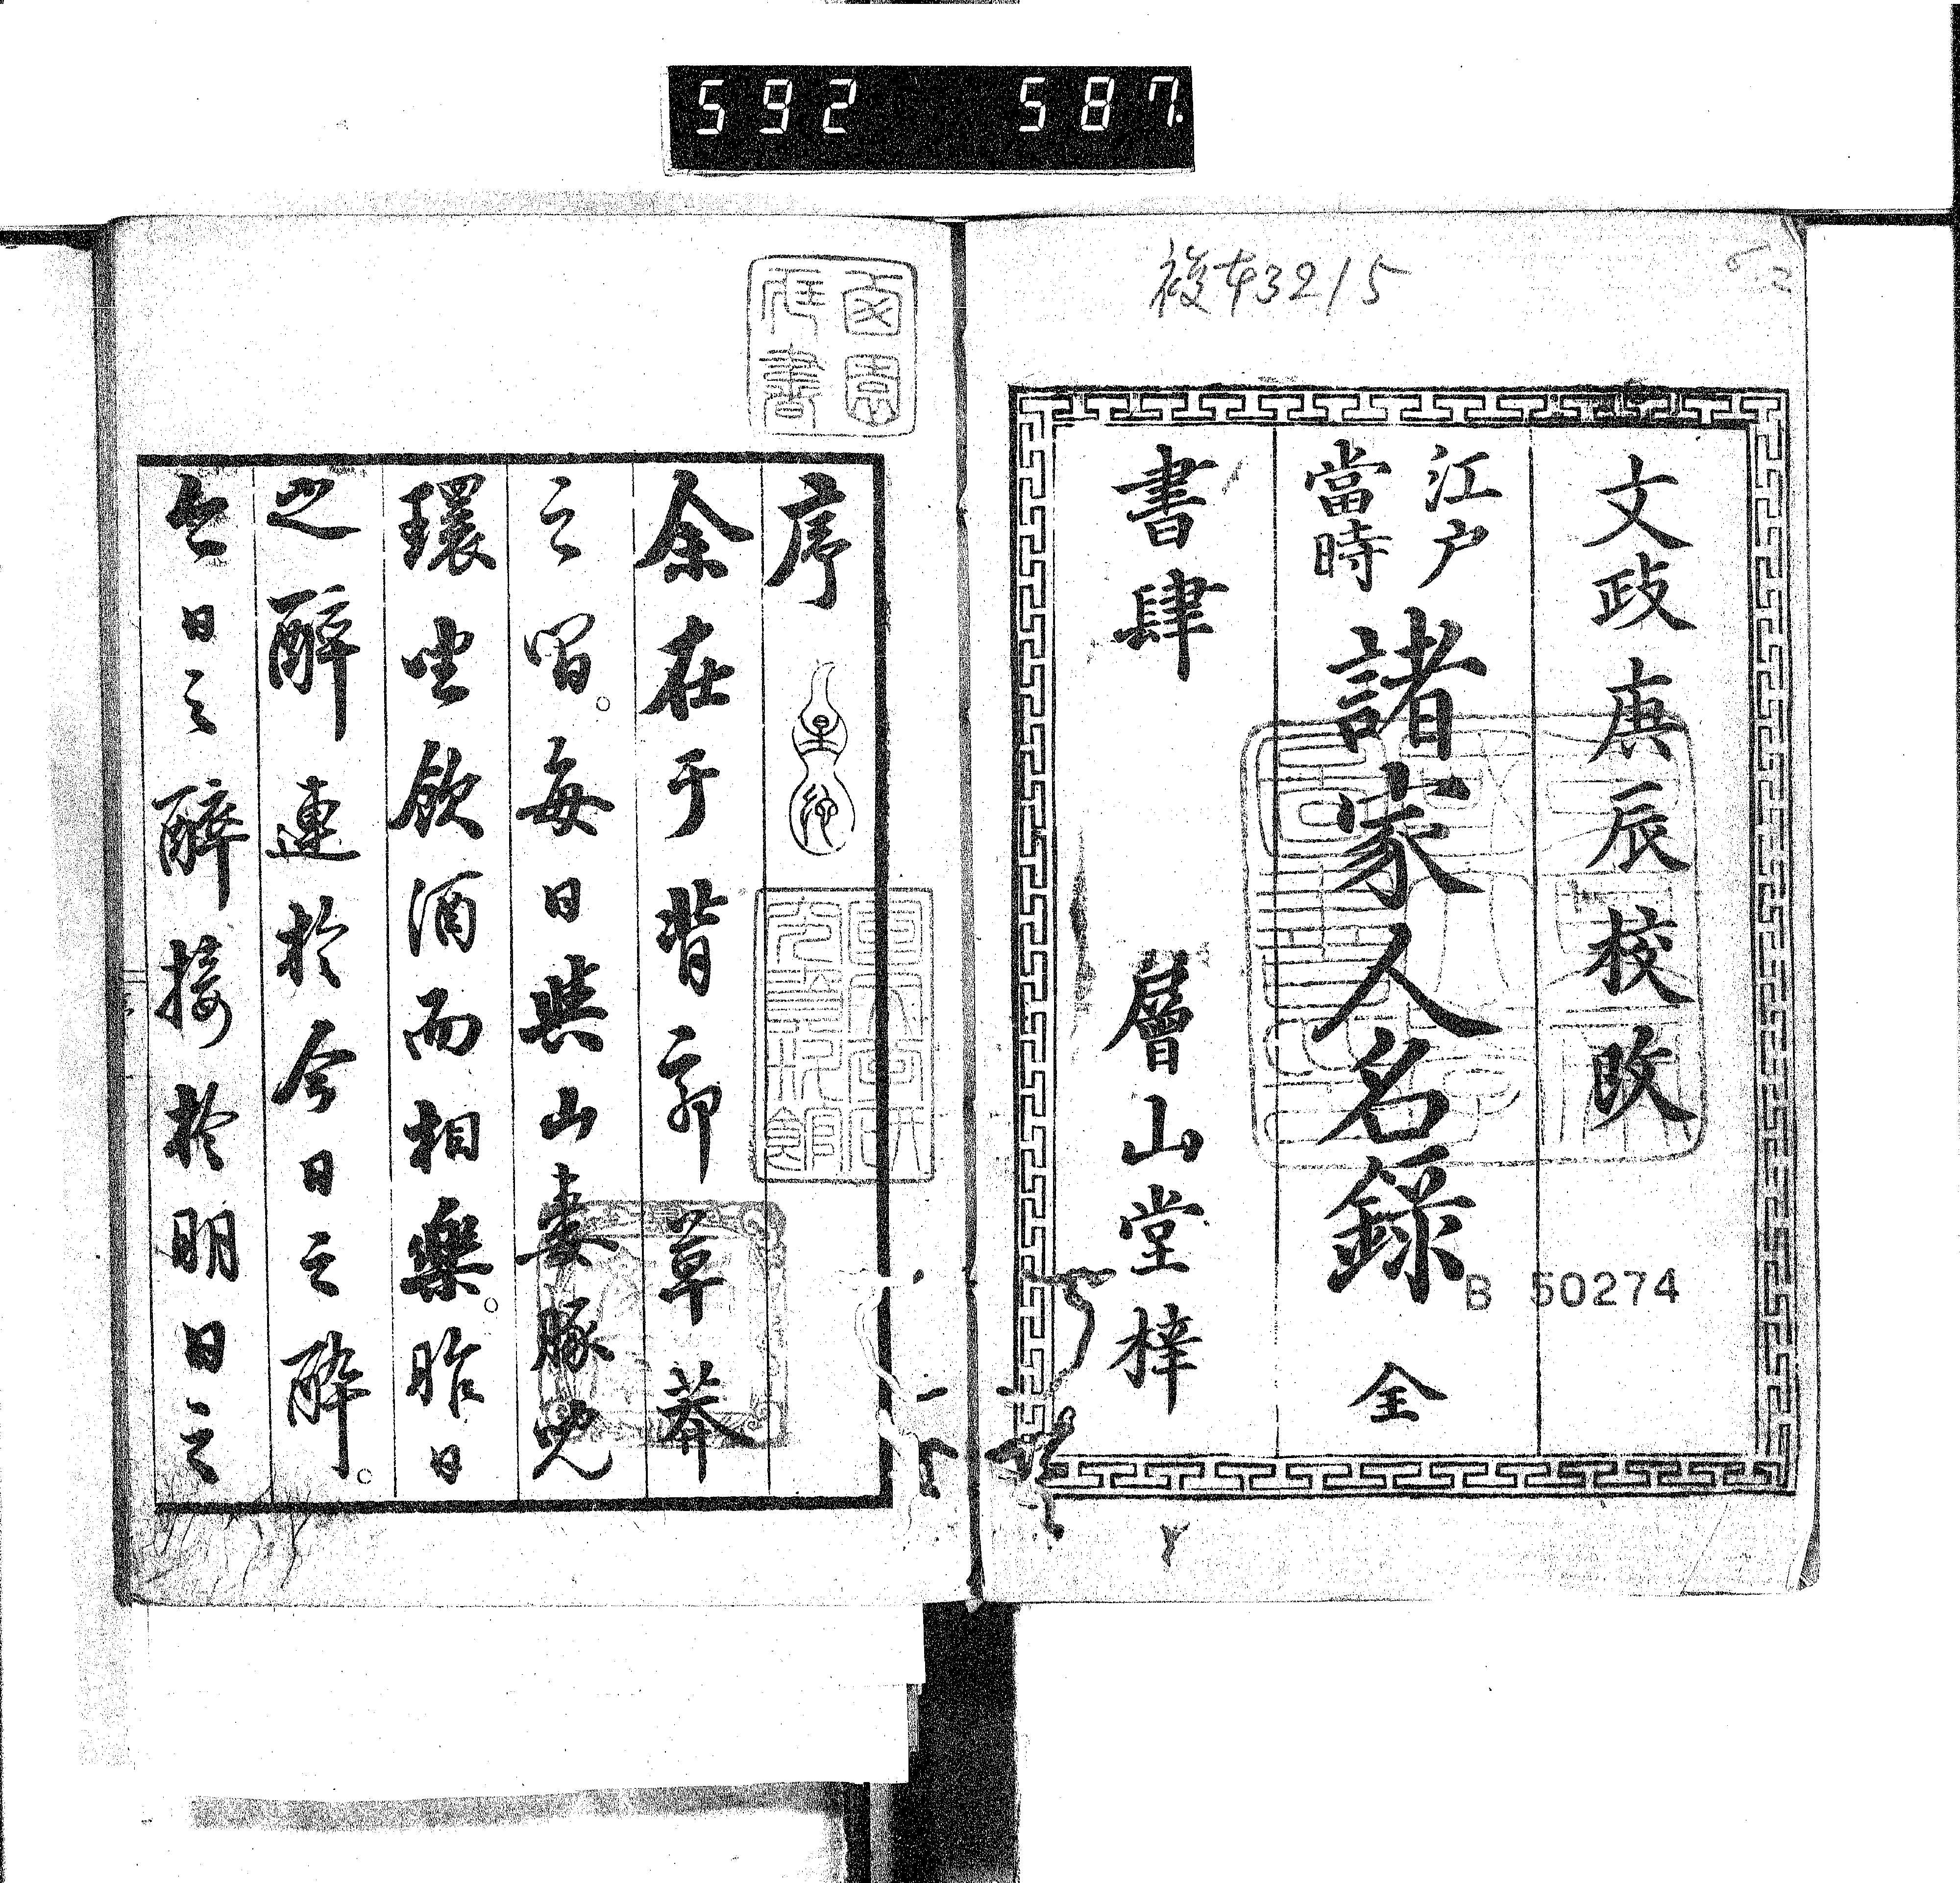 592 587.
複本3215
文政庚辰校改
江戸
當時
諸家人名録 全
B 50274
書肆 層山堂梓
序
余在于背郭草莽
之間。每日與山妻豚兒
環坐飲酒而相樂。昨日
之醉連於今日之醉。
今日之醉接於明日之